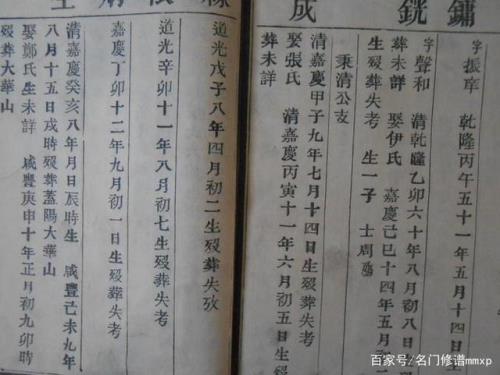 鏞
銧
成
字 振 乾隆丙午五十一年五月十四日生
字 聲和 清乾隆乙卯六十年八月初八日
葬未詳 娶伊氏 嘉慶己巳十四年五月
生歿葬失考 生一子 士周
秉清公支
清嘉慶甲子九年七月十四日生歿葬失考
娶張氏 清嘉慶丙寅十一年六月初五日生歿
葬未詳
道光戊子八年四月初二生歿葬失攷
道光辛卯十一年八月初七生歿葬失考
嘉慶丁卯十二年九月初一日生歿葬失考
清嘉慶癸亥八年月日辰時生 咸豐己未九年
八月十五日戌時歿葬蓋陽大華山
娶鄭氏生未詳 咸豐庚申十年正月初九卯時
歿葬大華山
百家号/名门修谱mmxp